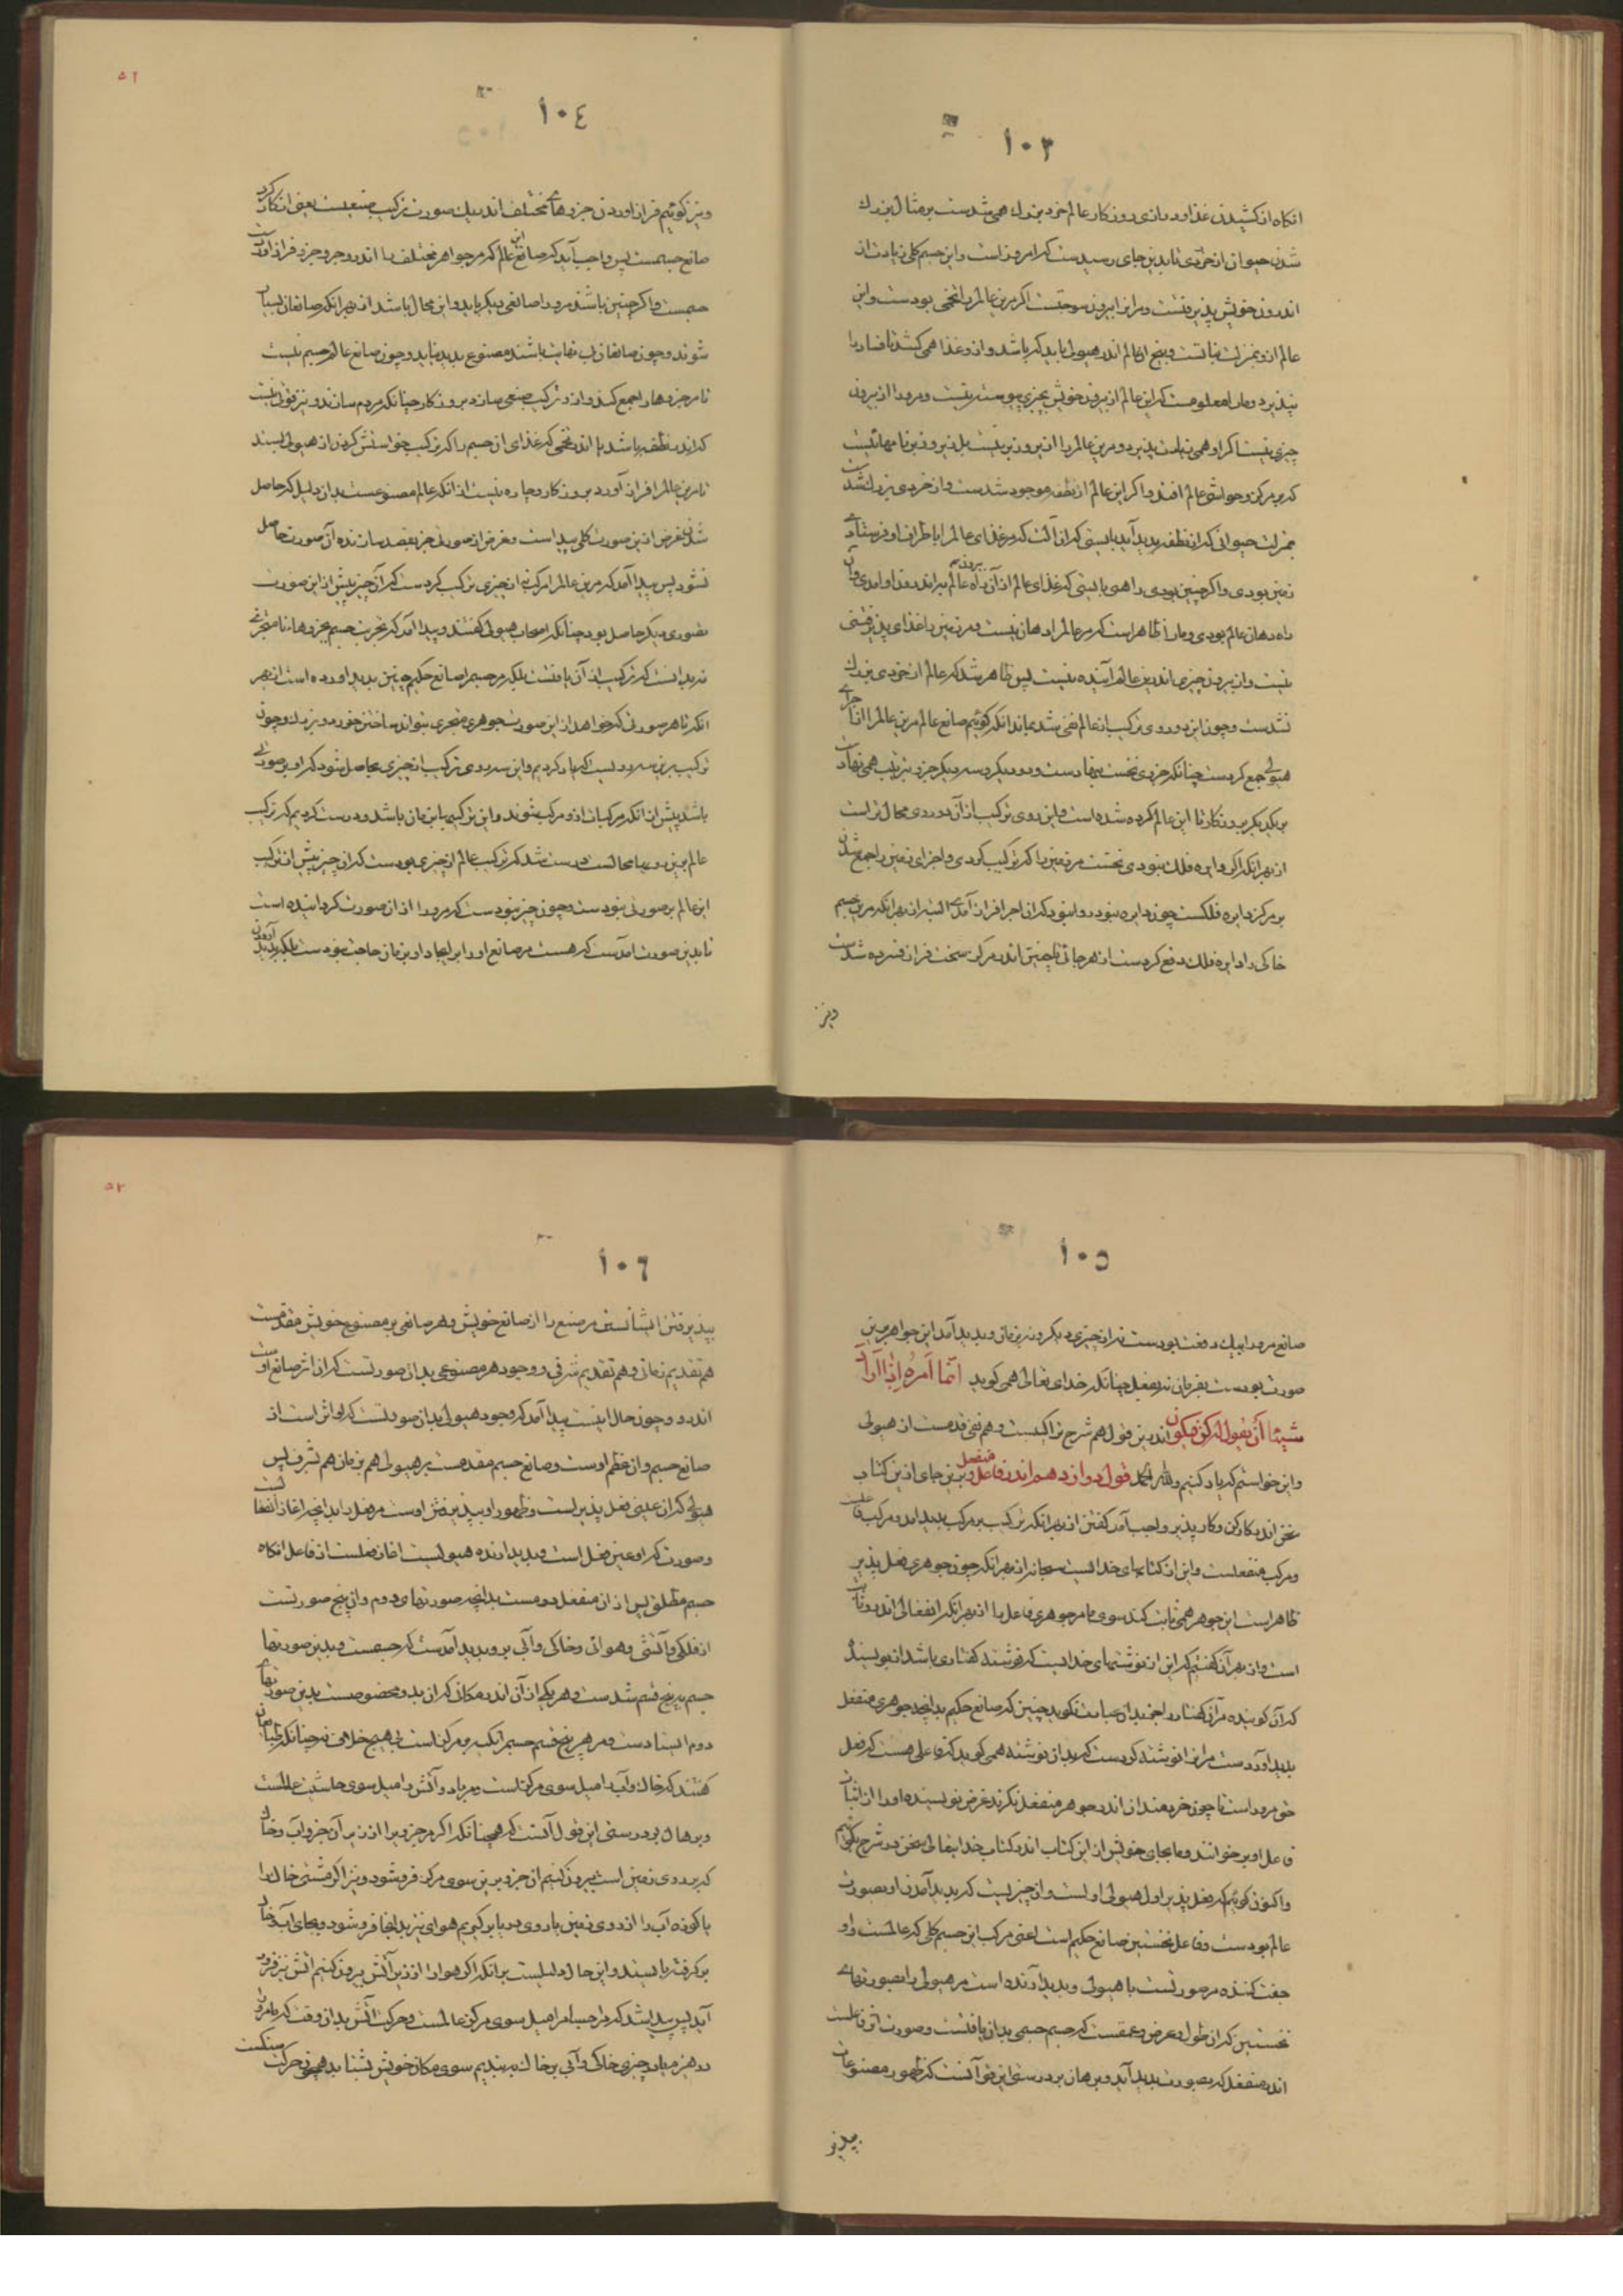 ١٠٣
انکاه از کشیدن غذا و درازی روزکار عالم خرد بزرك همی شدست بر مثال بزرك
شدن حیوان از خردی تا بدین جای رسیدست که امروز است و این جسم کلی زیادت از
اندرون خویش پذیرفتست و مر این را بیرون سو جفتست اکر مرین عالم را تخمی بودست و این
عالم ازو بمنزلت نباتست و بیخ این عالم اندر هیولی باید که باشد و ازو غذا همی کشد تا فساد را
نپذیرد و ما را معلومست که این عالم از بیرون خویش بچیزی پیوسته نیست و مرورا از بیرون
چیزی نیست که او همی زیادت پذیرد و مرین عالم را از بیرون نیست بل بیرون بر نامهاییست
که بر مرکز و حواشی عالم افتد و اکر این عالم از نطفه موجود شدست و از خردی بزرك شدست
بمنزلت حیوانی که از نطفه پدید آید بایستی که آن آلت که مر غذای عالم را باطراف او فرستادی
زمین بودی و اکر چنین بودی راهی بایستی که غذای عالم از آن راه عالم بیرون میر اندرون او امدی و آن
راه دهان عالم بودی و ما را ظاهر است که مر عالم را دهان نیست و مر زمین را غذای پذیرفتنی
نیست و از بیرون چیزی اندرین عالم آینده نیست پس ظاهر شد که عالم از خردی بزرك
نشدست و چون این دو روی ترکیب از عالم نفی شد بماند انکه کوئیم صانع عالم مرین عالم را از اجزای
هیولی جمع کردست چنانکه جزوی نخست بنهادست و دو دیکر و سه دیکر جزو بترتیب همی نهادست
بر یکدیکر بروزکار تا این عالم کرده شده است و این روی ترکیب از آن دو روی محال تر است
از بهر انکه اکر دایره فلك نبودی نخست مر زمین را که ترکیب کردی و اجزای زمین را جمع شدن
بر مرکز دایره فلکست چون دایره نبود روا نبود که آن اجزا فراز آمدی البته از بهر انکه مرین جسم
خاکی را دایره فلك دفع کردست از هر جانی تا چنین اندر مرکز سخت فراز فشرده شدست
ونیز
٥١
١٠٤
ونیز کوئیم فراز اوردن جزوهای مختلف اندر یك صورت ترکیب صنعیست یعنی انکار کرد
صانع جسمست پس واجب آید که صانع این عالم که مر جواهر مختلف را اندرو جزو جزو فراز آوردست
جسمست و اکر چنین باشد مرورا صانعی دیکر باید و این محال باشد از بهر انکه صانعان بسیار
شوند و چون صانعان بی نهایت باشند مصنوع پدید نیاید و چون صانع عالم جسم نیست
تا مر جزوها را جمع کند و ازو ترکیب صنعی سازد بروزکار چنانکه مردم سازند و نیز قوتی نیست
که اندر نطفه باشد یا اندر تخمی که غذای از جسم را که ترکیب خواستش کردن از هیولی بستد
تا مرین عالم را فراز آورد بروزکار و چاره نیست از انکه عالم مصنوعست بدان دلیل که حاصل
شدن غرض ازین صورت کلی پیداست و غرض از صورتی جز بقصد سازنده آن صورت حاصل
نشود پس پیدا آمد که مرین عالم را مرکب از چیزی ترکیب کردست که آن چیز پیش از این صورت
بصورتی دیکر حاصل بود چنانکه اصحاب هیولی کفتند و پیدا آمد که تجزیت جسم بجزوهای نامتجزی
نه بدانست که ترکیب از آن یافتست بلکه مر جسم را صانع حکیم چنین پدید اورده است از بهر
انکه تا هر صورتی که خواهد از این صورت جوهری متجزی بتواند ساختن خرد و بزرك و چون
ترکیب برین سه رویست که یاد کردیم و این سه روی ترکیب از چیزی حاصل شود که او بر صورتی
باشد پیش از انکه مرکبات ازو مرکب شوند و این ترکیبها بزمان باشد و درست کردیم که ترکیب
عالم برین رویها محالست درست شد که ترکیب عالم از چیزی بودست که آن چیز پیش از ترکیب
این عالم بر صورتی نبودست و چون چیز نبودست که مرورا از آن صورت کردانیده است
تا بدین صورت امدست که هست مر صانع او را بر ایجاد او بزمان حاجت نبودست بلکه پدید آوردن
١٠٥
صانع مرورا بیك دفعت بودست نه از چیزی دیکر و نه بزمان و پدید آمد این جواهر برین
صورت بودست بفرمان نه بفعل چنانکه خدای تعالی همی کوید انما امره اذا اراد
شیئا ان یقول له کن فیکون اندرین قول هم شرح تراکیبست و هم نفی قدمست از هیولی
و این خواستیم که یاد کنیم ولله الحمد قول دوازدهم اندر فاعل و منفعل برین جای ازین کتاب
سخن اندر کارکن و کارپذیر واجب آمد کفتن از بهر انکه ترکیب بر مرکب پدید امد و مرکب فاعلست
و مرکب منفعلست و این از کتابهای خدائیست سبحانه از بهر انکه چون جوهری فعل پذیر
ظاهر است این جوهر همی ثابت کند سوی ما مر جوهری فاعل را از بهر انکه انفعال اندرو ثابت
است و از بهر آن کفتیم که این از نوشتهای خدایست که نوشته کفتاری باشد از نویسنده
که آن کوینده مر آن کفتار را جز بدان عبارت نکوید چنین که صانع حکیم بدانچه جوهری منفعل
پدید اوردست مر این را نوشته کردست که بدان نوشته همی کوید که فاعلی هست که فعل
حق مروراست تا چون خردمندان اندر جوهر منفعل نکرند غرض نویسنده او را از اثبات
فاعل او برخوانند و ما بجای خویش از این کتاب اندر کتاب خدایتعالی سخن در شرح بکوئیم
و اکنون کوئیم که فعل پذیر اول هیولی اولیست و آن چیزیست که پدید آمدن او بصورت
عالم بودست و فاعل نخستین صانع حکیم است اعنی مرکب این جسم کلی که عالمست و او
جفت کننده مر صورتست با هیولی و پدید آرنده است مر هیولی را بصورتهای
نخستین که آن طول و عرض و عمقست که جسم جسمی بدان یافتست و صورت اثر فاعلست
اندر منفعل که بصورت پدید آید و برهان بر درستی این قول آنست که ظهور مصنوعات
بپذیر
٥٢
١٠٦
بپذیرفتن ایشانست مر صنع را از صانع خویش و هر صانعی بر مصنوع خویش مقدمست
هم تقدیم زمانی و هم تقدیم شرفی و وجود هر مصنوعی بدان صورتست که آن اثر صانع اوست
اندرو و چون حال اینست پیدا آمد که وجود هیولی بدان صورتست که او اثر است از
صانع جسم و آن عظم اوست و صانع جسم مقدمست بر هیولی هم بزمان هم بشرف پس
هیولی که آن عینی فعل پذیر است و ظهور او بپذیرفتن اوست مر فعل را بدانچه اغاز انفعالست
و صورت که او عین فعل است و پدید ارنده هیولیست اغاز فعلست از فاعل انکاه
جسم مطلق پس از آن منفعل دومست بدانچه صورتهای دوم و آن پنج صورتست
از فلکی و آتشی و هوائی و خاکی و آبی برو پدید آمدست که جسمست و بدین صورتها
جسم به پنج قسم شدست و هر یکی از آن اندر مکانی که آن بدو مخصوصست بدین صورتهای
دوم ایستادست و مر هر پنج قسم جسم را تکیه بر مرکز است بی هیچ خلافی نه چنانکه طبایعیان
کفتند که خاك و آب را میل سوی مرکزست و مر باد و آتش را میل سوی حاشیت عالمست
و برهان بر درستی این قول آنست که همچنانکه اکر مر جزویرا از زیر آن جزو آب و خاك
که بر روی زمین است بیرون کنیم ان جزو برین سوی مرکز فرو شود و نیز اکر مشتی خاك را
یا کوزه آب را از روی زمین یا روی دریا بر کیریم هوای نیز بدانجا فرو شود و بجای آب و خاك
بر کرفته بایستد و این حال دلیلیست بر انکه اکر هوا را از زیر آتش بیرون کنیم آتش نیز فرود
آید پس پیدا شد که مر اجسام را میل سوی مرکز عالمست و حرکت آتش بدان وقت که ما مرورا
در هیز میاد و چیزی خاکی و آبی بر خاك ببندیم سوی مکان خویش بشتابد همچون حرکت سنکست